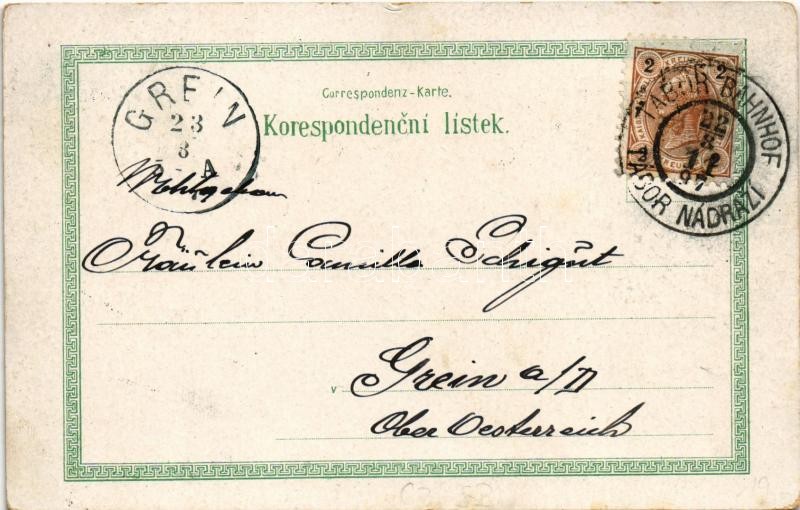 Correspondenz-Karte.
Korespondenční lístek.
GREIN
23
8
A
2 2
TABOR BAHNHOF
22
8
97
TABOR NÁDRAŽÍ
Wohlgeboren
Fräulein Camilla Schigut
v Grein a/D
Ober Oesterreich